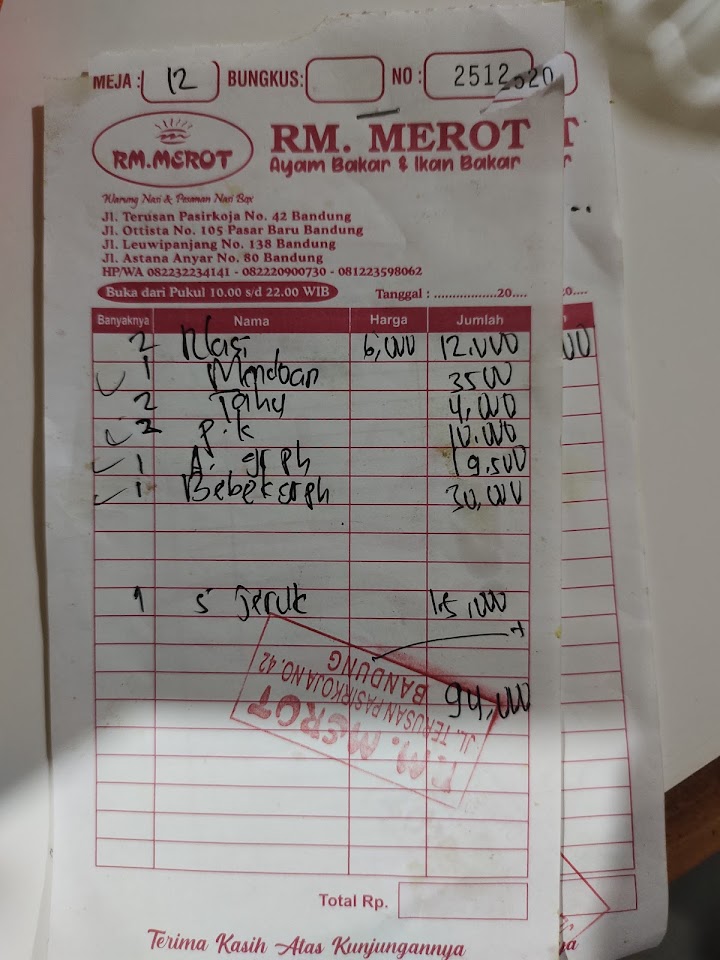 MEJA : 12 BUNGKUS: NO : 2512020
RM.MEROT
RM. MEROT
Ayam Bakar & Ikan Bakar
Warung Nasi & Pesanan Nasi Box
Jl. Terusan Pasirkoja No. 42 Bandung
Jl. Ottista No. 105 Pasar Baru Bandung
Jl. Leuwipanjang No. 138 Bandung
Jl. Astana Anyar No. 80 Bandung
HP/WA 082232234141 - 082220900730 - 081223598062
Buka dari Pukul 10.00 s/d 22.00 WIB
Tanggal : ..................20....
Banyaknya Nama Harga Jumlah
2 Nasi 6,000 12.000
1 Mendoan 3500
2 Tahu 4,000
2 p.k 10.000
1 A. grph 19.500
1 Bebek grph 30,000
1 s Jeruk 15,000
94,000
R.M. MEROT
JL. TERUSAN PASIRKOJA NO. 42
BANDUNG
Total Rp.
Terima Kasih Atas Kunjungannya